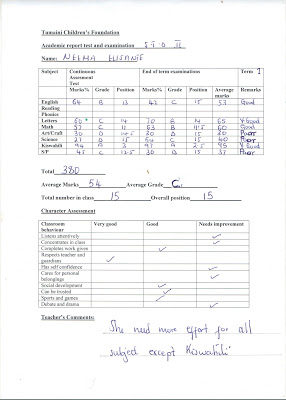 Tumaini Children's Foundation
Academic report test and examination STD II
Name: NEEMA ELISANTE
Subject Continuous Assessment Test End of term examinations Term
Marks% Grade Position Marks% Grade Position Average marks Remarks
English 64 B 13 42 C 15 53 Good
Reading
Phonics
Letters 60 C 14 70 B 14 65 V.Good
Math 57 C 11 63 B 60 Good
Art/Craft 30 D 30 D 15 30 Poor
Science 21 D 15 C 15 40 Poor
Kiswahili A 3 A 95 V.Good
S/P 45 C 30 D 15 37 Poor
Total 380
Average Marks 54 Average Grade C
Total number in class 15 Overall position 15
Character Assessment
Classroom behaviour Very good Good Needs improvement
Listens attentively ✓
Concentrates in class ✓
Completes work given ✓
Respects teacher and guardians ✓
Has self confidence ✓
Cares for personal belongings ✓
Social development ✓
Can be trusted ✓
Sports and games ✓
Debate and drama ✓
Teacher's Comments:
She need more effort for all
subject except Kiswahili